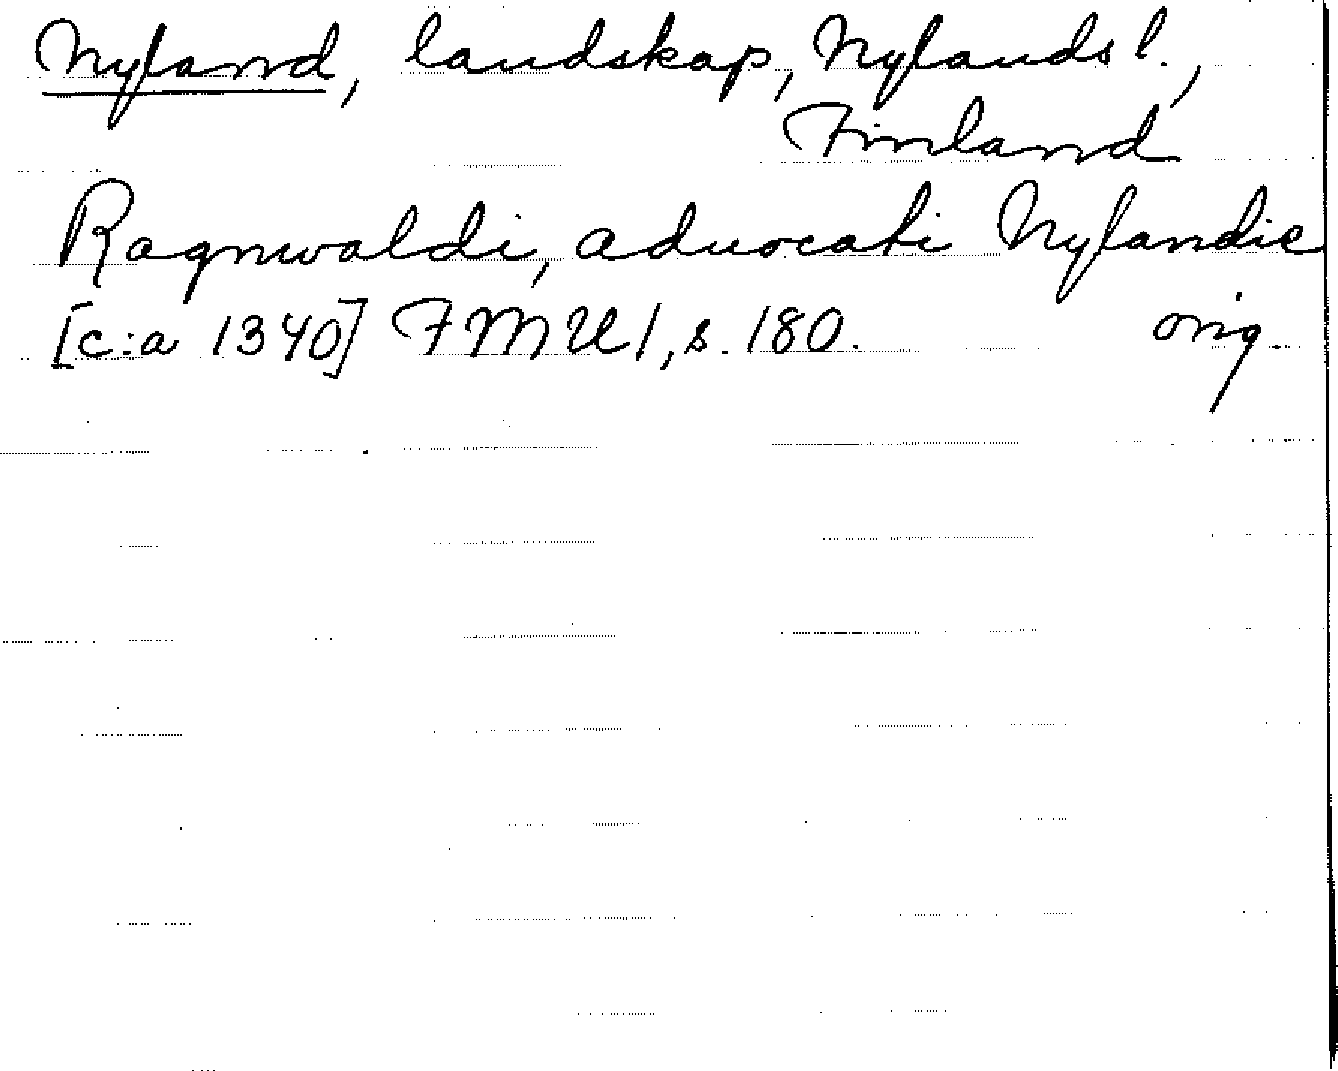 Nyland, landskap, Nylands l.,
Finland
Ragnwaldi, aduocati Nylandie
[c:a 1340] FMU 1, s. 180. orig